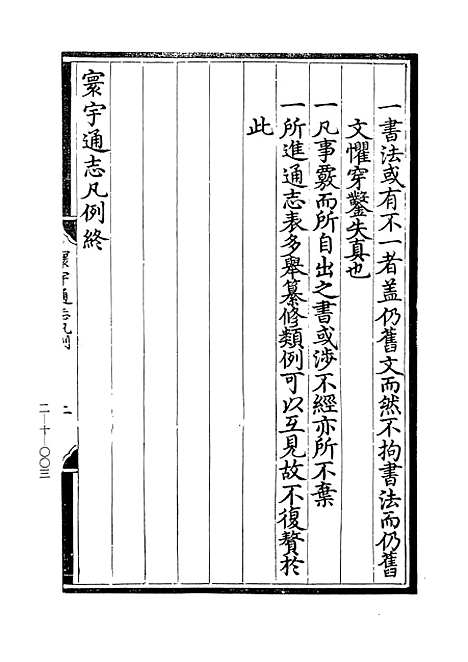 一書法或有不一者蓋仍舊文而然不拘書法而仍舊
文懼穿鑿失真也
一凡事覈而所自出之書或涉不經亦所不棄
一所進通志表多舉纂修類例可以互見故不復贅於
此
寰宇通志凡例終
寰宇通志凡例
二
二—十—〇〇三